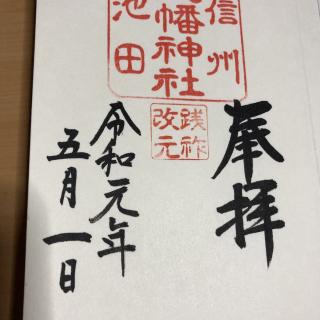 奉拝
信州
八幡神社
池田
践祚
改元
令和元年
五月一日